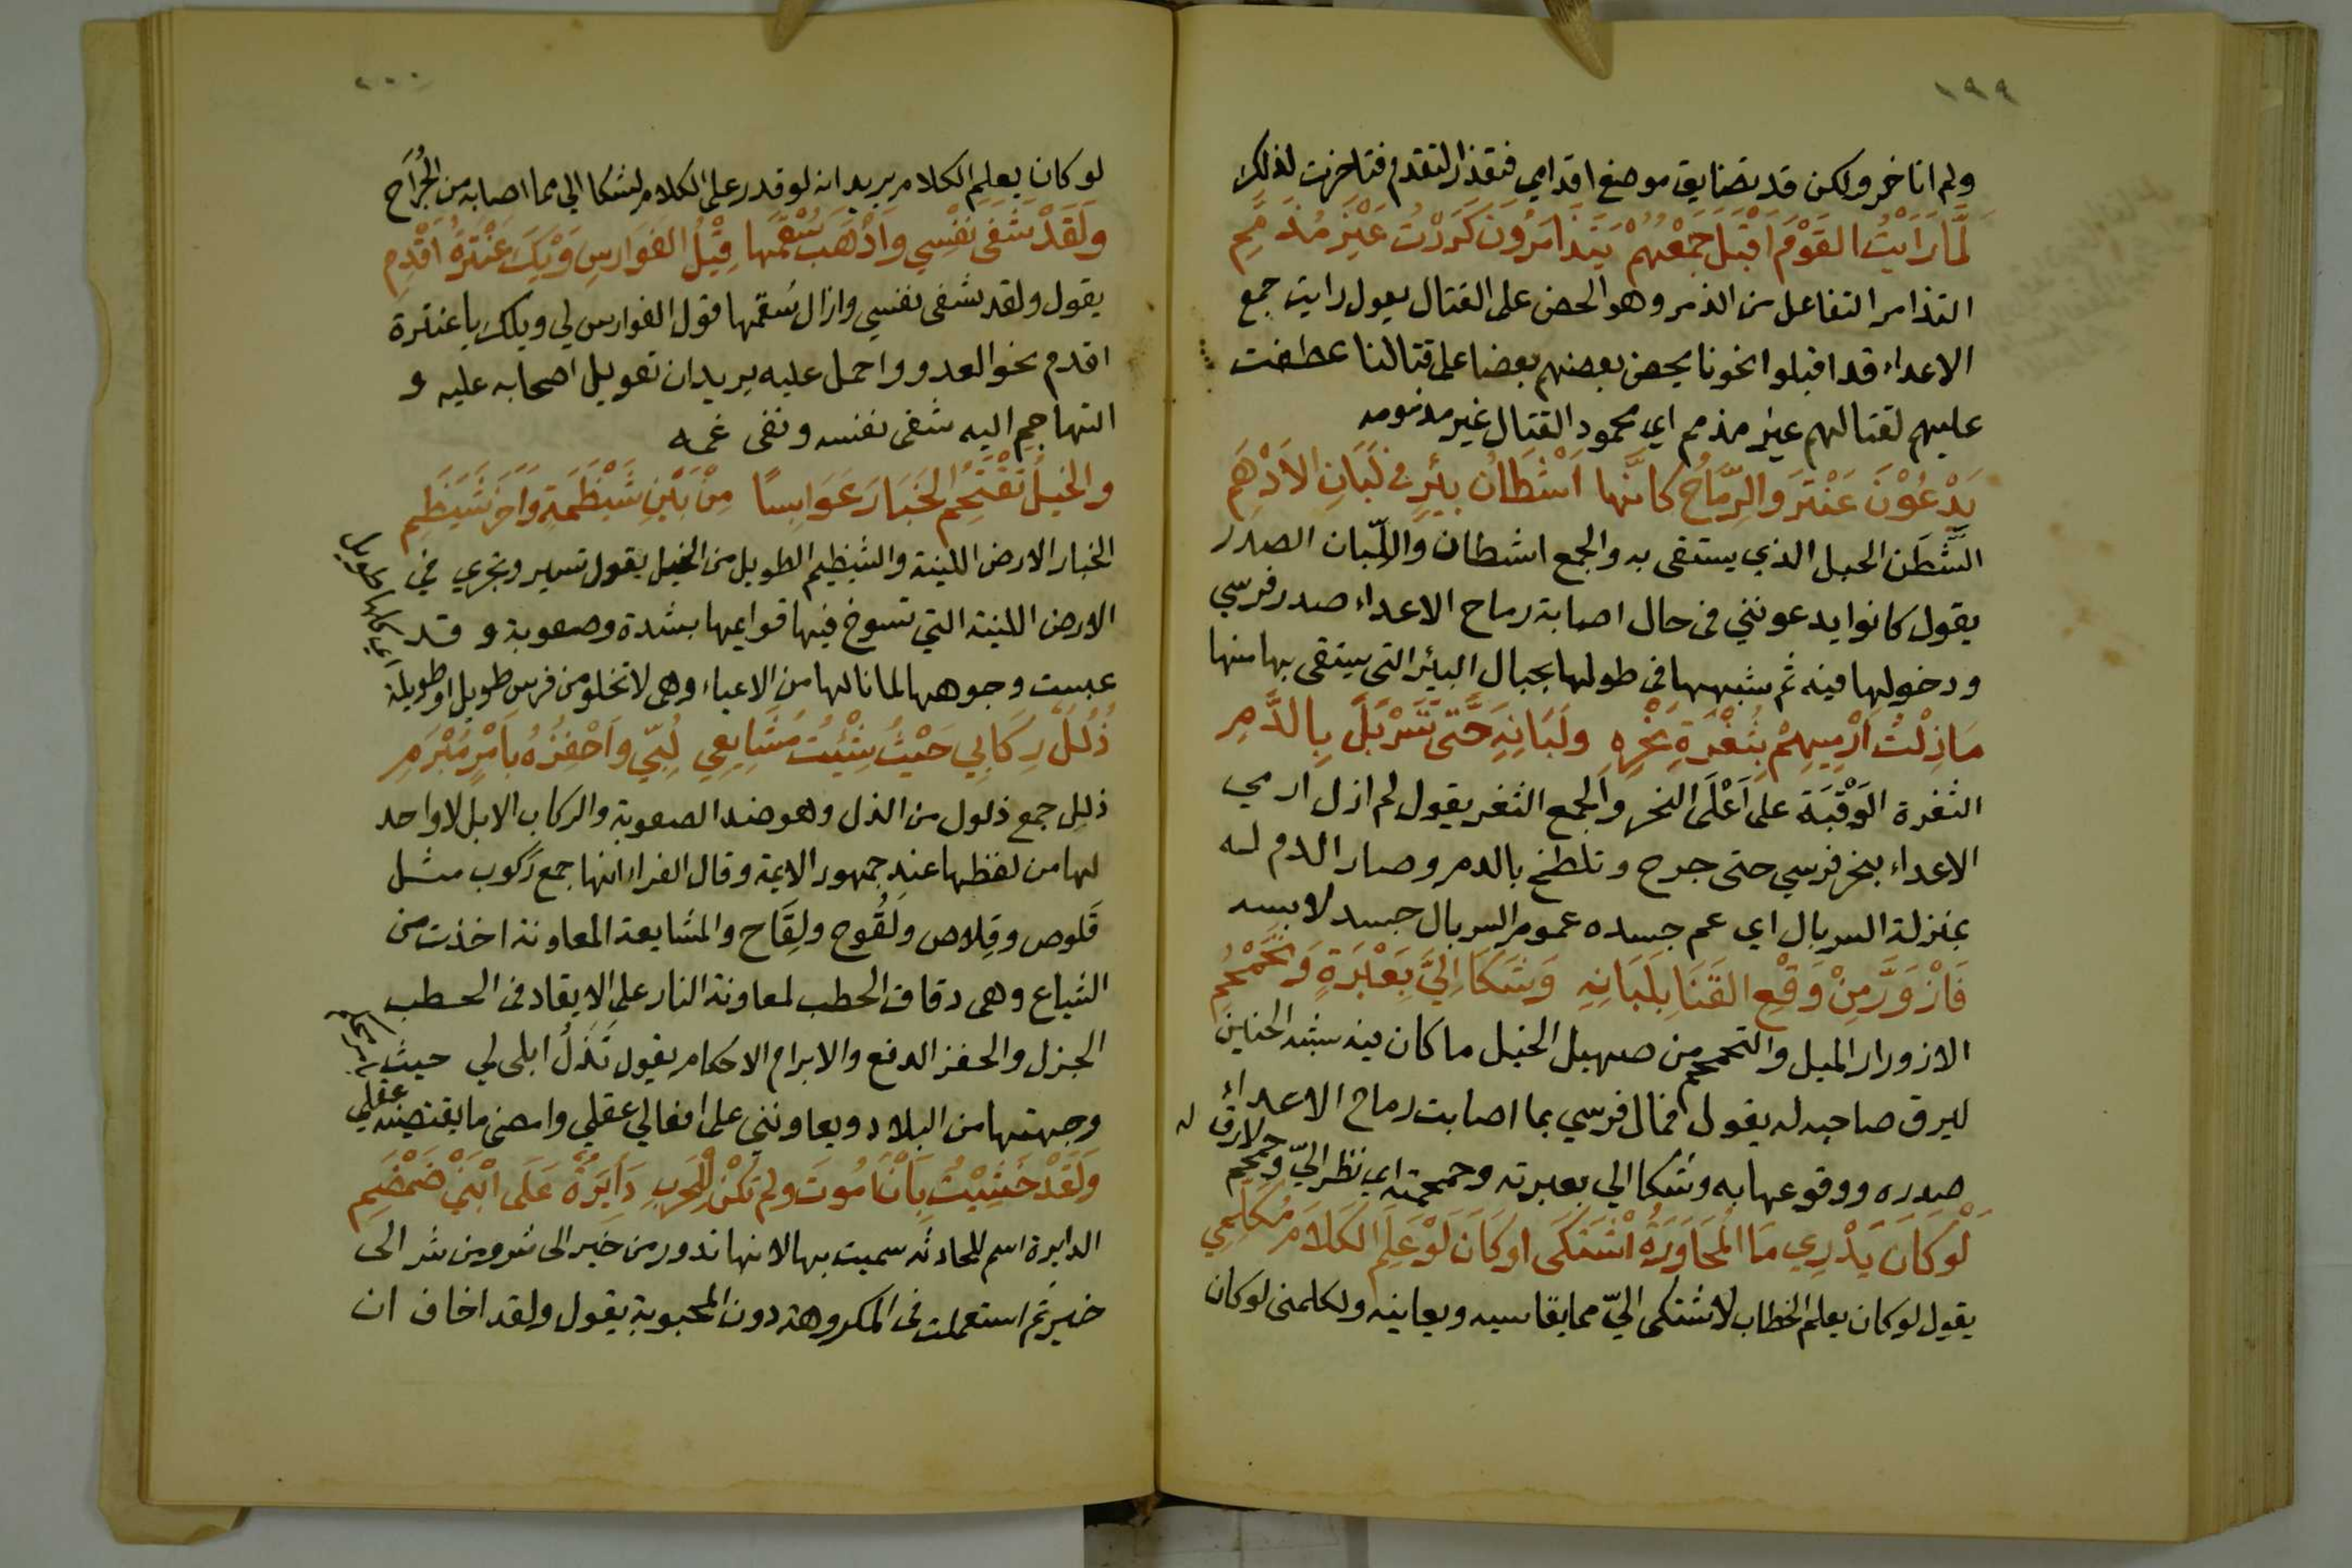 ١٩٩
ولم اتاخر ولكن قد تضايق موضع اقدامي فتعذر التقدم فتاخرت لذلك
لَمَّا رَاَيْتُ القَوْمَ اَقْبَلَ جَمْعُهُمْ يَتَذَامَرُونَ كَرَرْتُ غَيْرَ مُذَمَّمِ
التذامر التفاعل من الذمر وهو الحض على القتال يقول رايت جمع
الاعداء قد اقبلوا نحونا يحض بعضهم بعضا على قتالنا عطفت
عليهم لقتالهم غير مذمم اي محمود القتال غير مذمومه
يَدْعُوْنَ عَنْتَرَ وَالرِّمَاحُ كَاَنَّهَا اَشْطَانُ بِئْرٍ في لَبَانِ الاَدْهَمِ
الشَّطَن الحبل الذي يستقى به والجمع اشطان واللَّبان الصدر
يقول كانوا يدعونني في حال اصابة رماح الاعداء صدر فرسي
ودخولها فيه ثم شبهها في طولها بحبال البئر التي يستقى بها منها
مَا زِلْتُ اَرْمِيهِمْ بِثُغْرَةِ نَحْرِهِ ولَبَانِهِ حَتّى تَسَرْبَلَ بِالدَّمِ
الثغرة الوَقْبَة على اَعْلَى النحر والجمع الثغر يقول لم ازل ارمي
الاعداء بنحر فرسي حتى جرح وتلطخ بالدم وصار الدم له
بمنزلة السربال اي عم جسده عموم السربال جسد لابسه
فَازْوَرَّ مِنْ وَقْعِ القَنَا بِلَبَانِهِ وَشَكَا اِلَيَّ بِعَبْرَةٍ وَتَحَمْحُمِ
الازورار الميل والتحمحم من صهيل الخيل ما كان فيه شبه الحنين
ليرق صاحبه له يقول فمال فرسي بما اصابت رماح الاعداء
صدره ووقوعها به وشكا الي بعبرته وحمحمته اي نظر اليّ وحمحم لارق له
لَوْ كَانَ يَدْرِي مَا المُحَاوَرَةُ اشْتَكَى اوكَانَ لَوْ عَلِمَ الكَلَامَ مُكَلِّمِي
يقول لو كان يعلم الخطاب لاشتكى اليّ مما يقاسيه ويعانيه ولكلمني لو كان
٢٠٠
لو كان يعلم الكلام يريد انه لو قدر على الكلام لشكا الي مما اصابه من الجُرَاح
ولَقَدْ شَفَى نَفْسِي واَذْهَبَ سُقْمَهَا قِيْلُ الفَوَارِسِ وَيْكَ عَنْتَرَةُ اَقْدِمِ
يقول ولقد شفى نفسي وازال سُقمها قول الفوارس لي ويلك يا عنترة
اقدم نحو العدو واحمل عليه يريد ان تعويل اصحابه عليه و
التهاجم اليه شفى نفسه ونفى غمه
والخَيْلُ تَقْتَحِمُ الخَبَارَ عَوَابِسًا مِنْ بَيْنِ شَيْظَمَةٍ وَاَخَرَ شَيْظَمِ
الخبار الارض اللينة والشيظم الطويل من الخيل يقول تسير وتجري في
الارض اللينة التي تسوخ فيها قوايمها بشدة وصعوبة و قد
عبست وجوهها لما نالها من الاعياء وهي لا تخلو من فرس طويل او طويلة
اي كلها طويل
ذُلُلٌ رِكَابِي حَيْثُ شِئْتُ مُشَايِعِي لُبّي واَحْفِزُهُ بِاَمْرٍ مُبْرَمِ
ذلل جمع ذلول من الذل وهو ضد الصعوبة والركاب الابل لا واحد
لها من لفظها عند جمهور الايمة وقال الفرا انها جمع ركوب مثل
قَلوص وقِلاص ولَقُوح ولِقَاح والمشايعة المعاونة اخذت من
الشياع وهي دقاق الحطب لمعاونة النار على الايقاد في الحطب
الجزل والحفز الدفع والابرام الاحكام يقول تَذِلُّ ابلي لي حيث
وجهتها من البلاد ويعاونني على افعالي عقلي وامضي ما يقتضيه عقلي
وَلَقَدْ خَشِيْتُ بِاَنْ اَمُوتَ ولم تَكُنْ لِلْحَربِ دَايِرَةٌ عَلَى ابْنَيْ ضَمْضَمِ
الدايرة اسم للحادثه سميت بها لانها تدور من خير الى شر ومن شر الى
خير ثم استعملت في المكروهة دون المحبوبة يقول ولقد اخاف ان